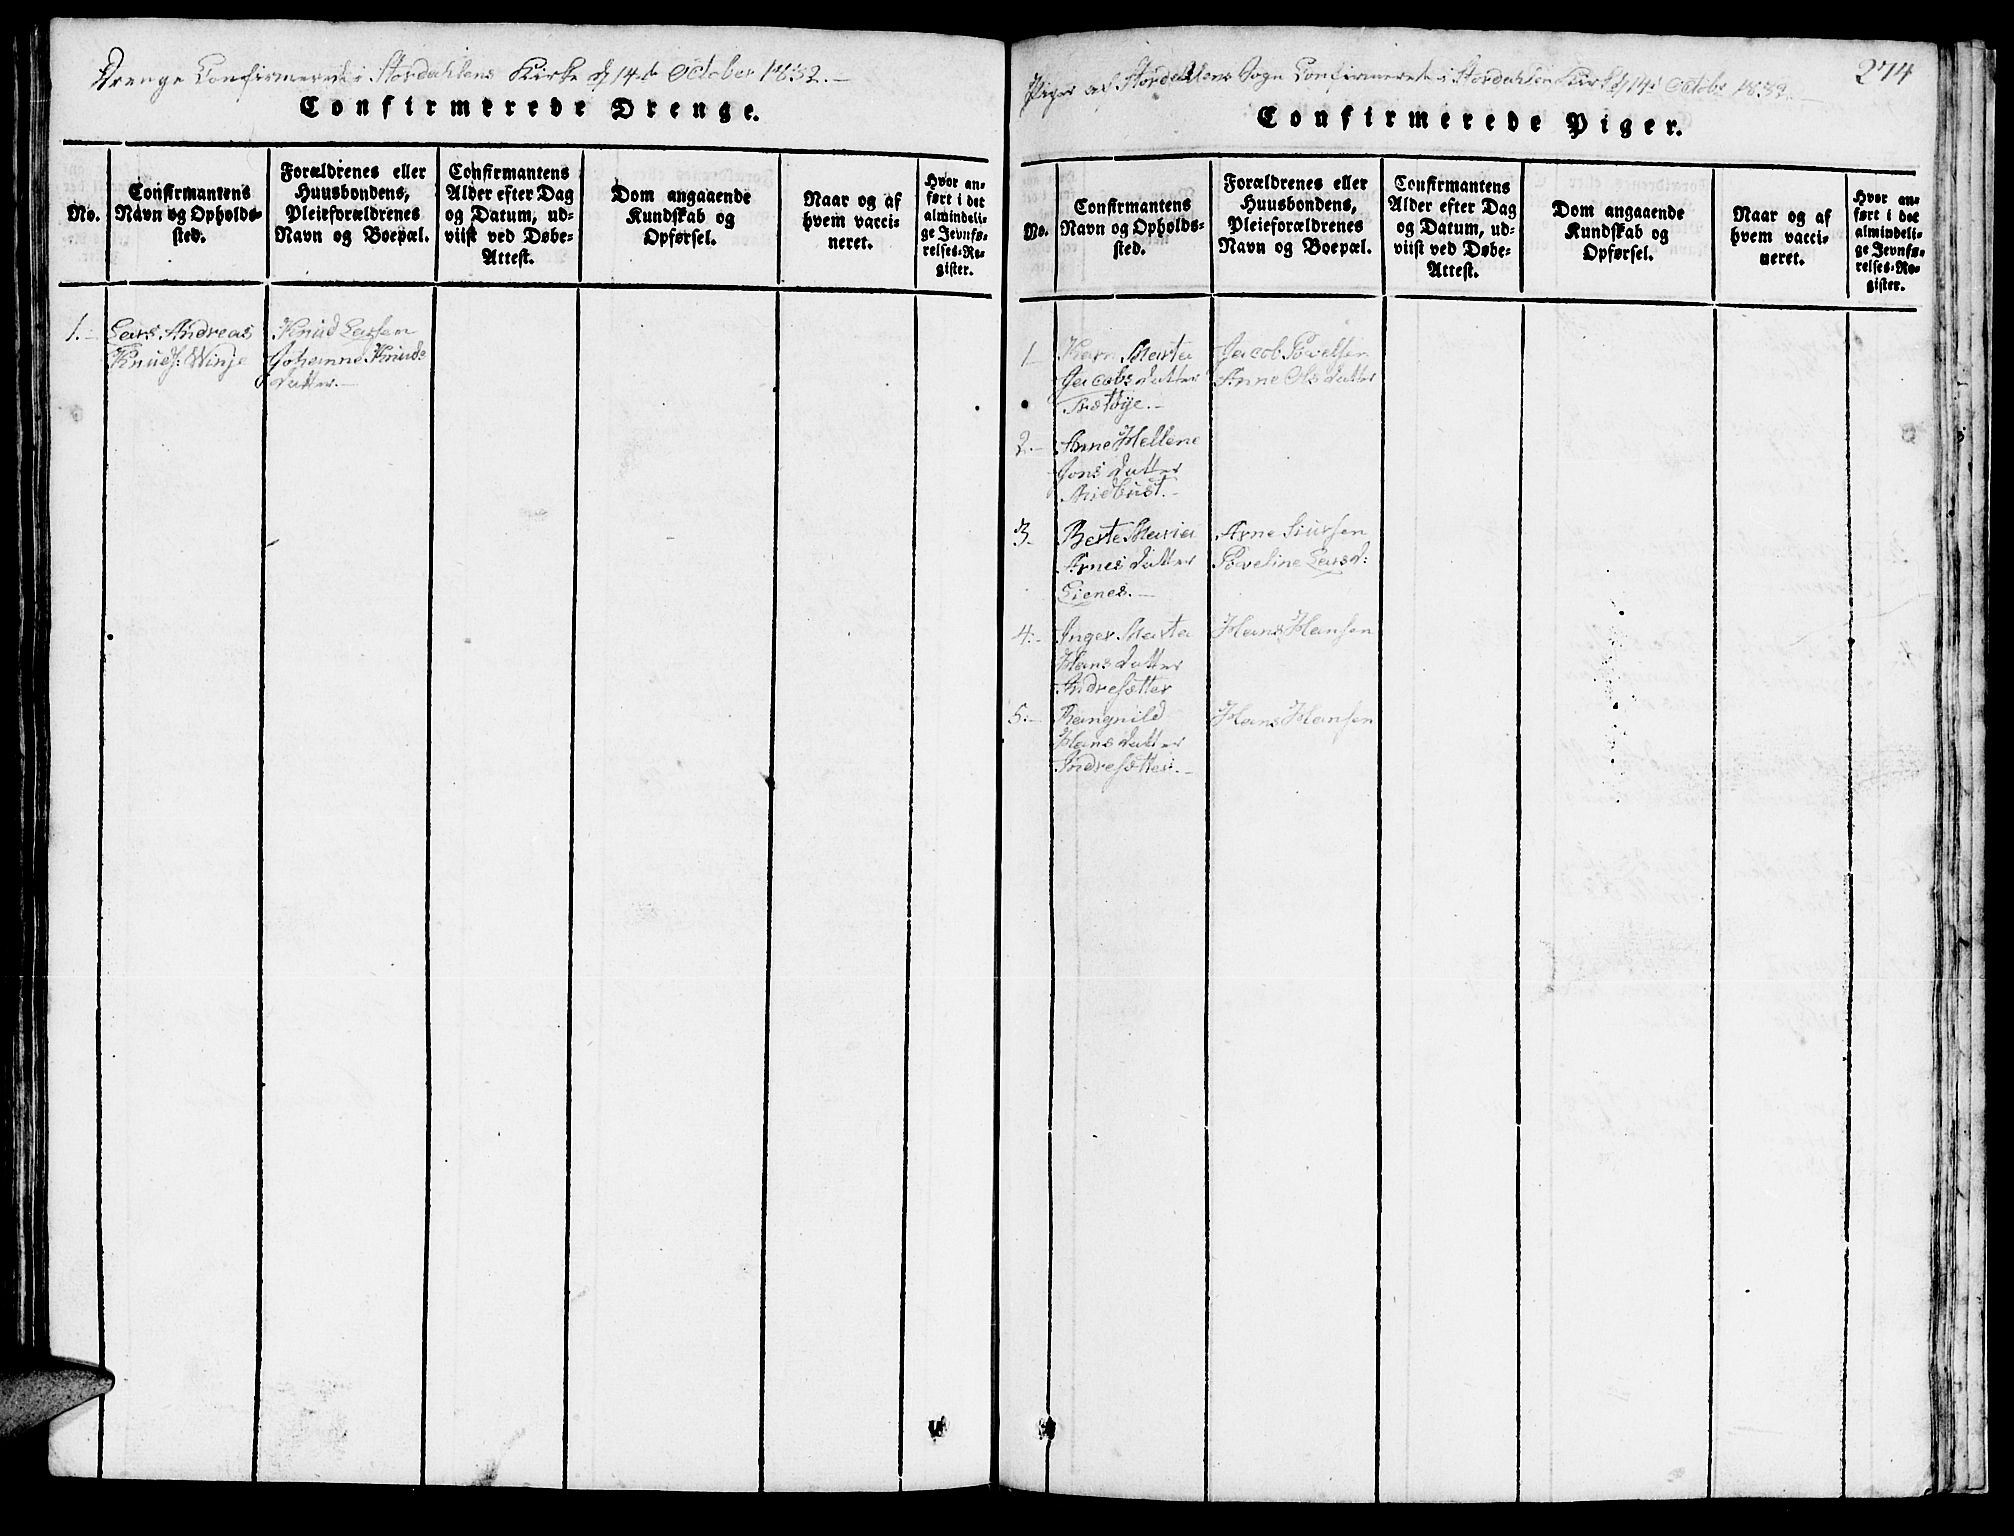 Drenge Confirmerede i Stordahlens Kirke d 14de October 1832.-
Confirmerede Drenge.
No.
Confirmantens
Navn og Opholds-
sted.
Forældrenes eller
Huusbondens,
Pleieforældrenes
Navn og Boepæl.
Confirmantens
Alder efter Dag
og Datum, ud-
viist ved Døbe-
Attest.
Dom angaaende
Kundskab og
Opførsel.
Naar og af
hvem vacci-
neret.
Hvor an-
ført i det
almindeli-
ge Jevnfø-
relses-Re-
gister.
1.-
Lars Andreas
Knuds: Winje
Knud Larsen
Johanne Knuds
datter.-
274
Piger af Stordahlens Sogn Confirmerede i Stordahlens Kirke d 14de Octobr 1832.-
Confirmerede Piger.
No.
Confirmantens
Navn og Opholds-
sted.
Forældrenes eller
Huusbondens,
Pleieforældrenes
Navn og Boepæl.
Confirmantens
Alder efter Dag
og Datum, ud-
viist ved Døbe-
Attest.
Dom angaaende
Kundskab og
Opførsel.
Naar og af
hvem vacci-
neret.
Hvor an-
ført i det
almindeli-
ge Jevnfø-
relses-Re-
gister.
1
Karn Marta
Jacobs datter
Jacob Povelsen
Anne Ols datter
2.-
Anne Hellene
Jons datter
Miebust.-
3.
Berte Maria
Arnes datter
Lienes.-
Arne Siursen
Poveline Larsd:
4.-
Inger Marta
Hans datter
Andresætter
Hans Hansen
5.-
Rangnild
Hans datter
Andresætter.-
Hans Hansen